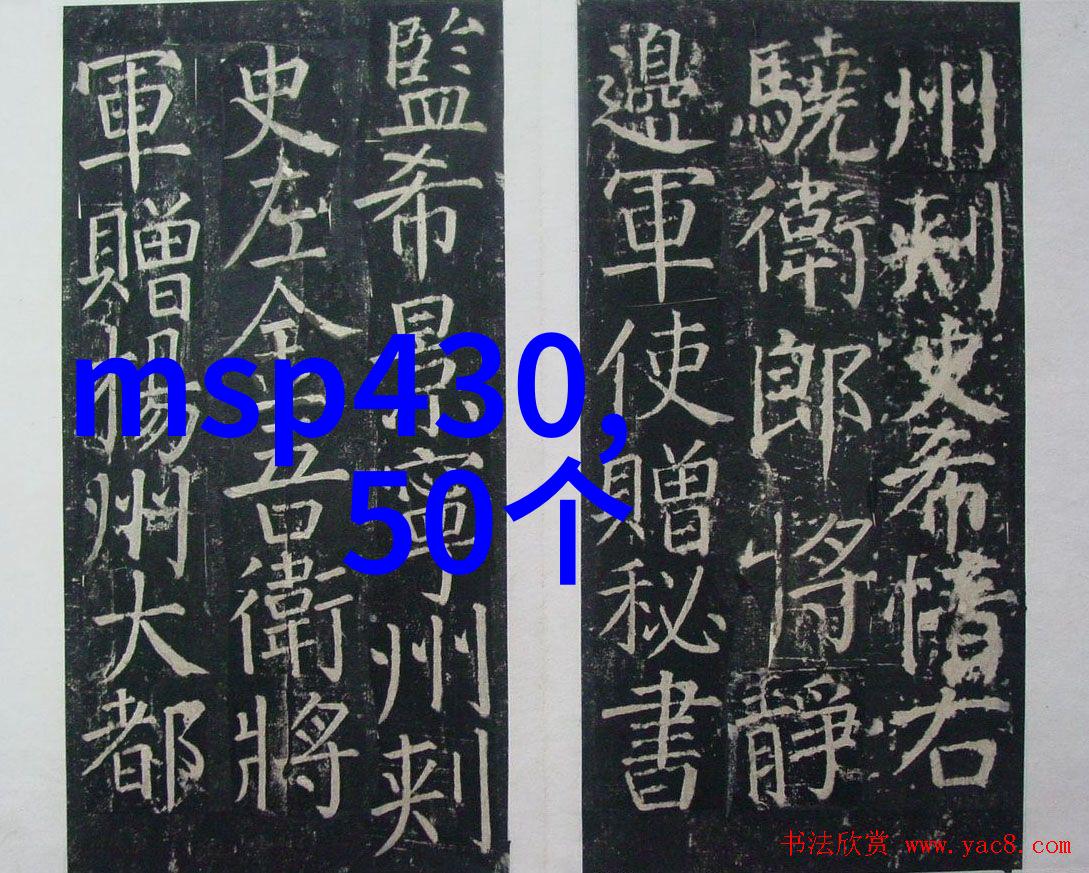 州刾史希惜右
驍衛郎將靜
邊軍使贈秘書
監希景寧州刾
史左金吾衛將
軍贈揚州大都
msp430,
50个
书法欣赏 www.yac8.com